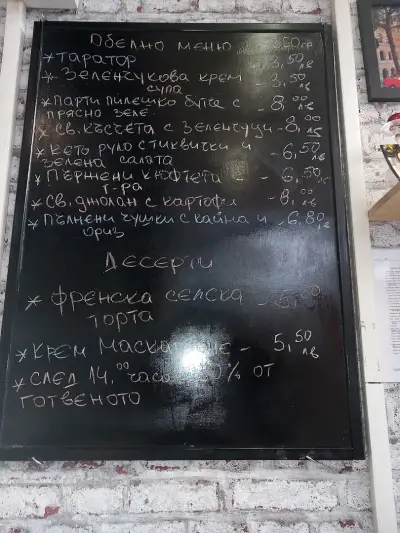 Обедно меню
* Таратор - 3,50 лв
* Зеленчукова крем - 3,50 лв
супа
* Парти пилешко бутче с - 8,00 лв
прясно зеле
* Св. късчета с зеленчуци - 8,00 лв
* Кето руло с тиквички и - 6,50 лв
зелена салата
* Пържени кюфтета с - 6,50 лв
г-ра
* Св. джолан с картофи - 8,00 лв
* Пълнени чушки с кайма и - 6,80 лв
ориз
Десерти
* Френска селска
торта
* Крем - 5,50 лв
* След 14,00 часа % от
готвеното